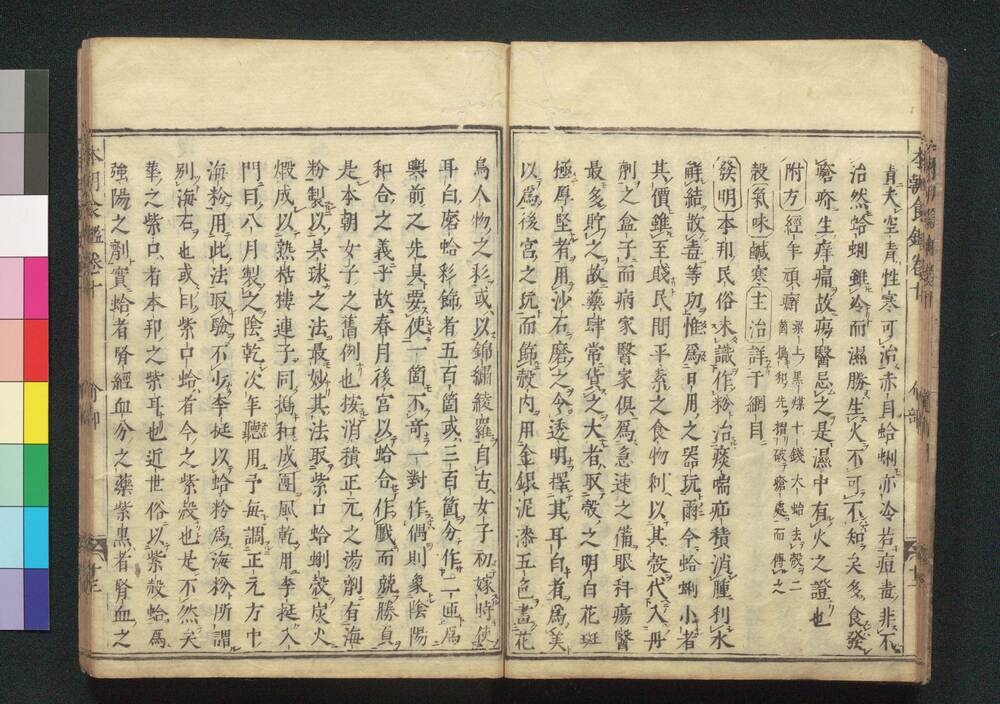 貞夫空青性寒可治赤目蛤蜊亦冷若痘毒非不
治然蛤蜊雖冷而濕勝生火不可不知矣多食發
瘡疥生痒痛故瘍醫忌之是濕中有火之證也
附方 經年頑癬 梁上黑煤十錢大蛤去殼二
先 破癬處而傅之
殼氣味鹹寒主治詳于綱目
發明本邦民俗未識作粉治痰喘疝積消腫利水
解結散毒等功惟爲日用之器玩爾今蛤蜊小者
其價雖至賤民間平素之食物利以其殼代入丹
劑之盒子而病家醫家俱爲急速之備眼科瘍醫
最多貯之故藥肆常貨之大者取殼之明白花斑
極厚堅者用沙石磨之令透明擇其耳白者爲美
以爲後宮之玩而飾殼内用金銀泥漆五色畫花
鳥人物之彩或以錦繡綾羅自古女子初嫁時使
耳白磨蛤彩飾者五百箇或三百箇分作二匣爲
輿前之先具要使一箇不奇一對作偶則象陰陽
和合之義乎故春月後宮以蛤合作戲而競勝負
是本朝女子之舊例也按消積正元之湯劑有海
粉製以具球之法最妙其法取紫口蛤蜊殼炭火
煆成以熟栝樓連子同搗和成團風乾用李挻入
門曰八月製之陰乾次年聽用予每調正元方中
海粉用此法取驗不少李挻以蛤粉爲海粉所謂
別海石也或曰紫口蛤者今之紫殼也是不然矣
華之紫口者本邦之紫耳也近世俗以紫殼蛤爲
強陽之劑實蛤者腎經血分之藥紫黑者腎血之
本朝食鑑卷十